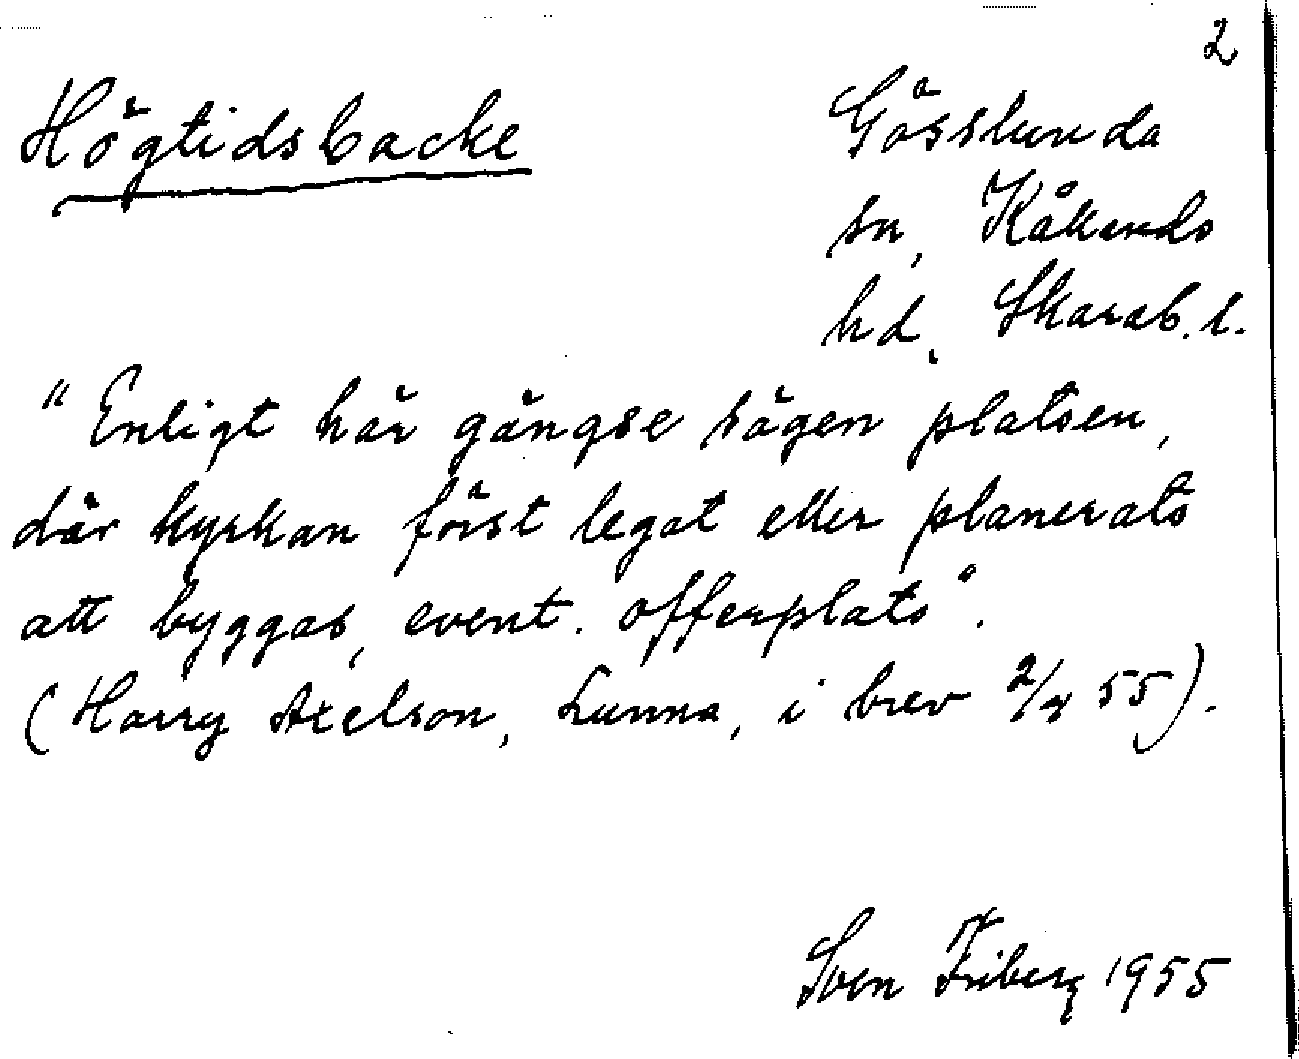 2
Högtidsbacke
Gösslunda
sn, Kålands
hd, Skarab. l.
"Enligt här gängse sägen platsen,
där kyrkan först legat eller planerats
att byggas, event. offerplats".
(Harry Axelson, Lunna, i brev 2/4 55).
Sven Friberg 1955